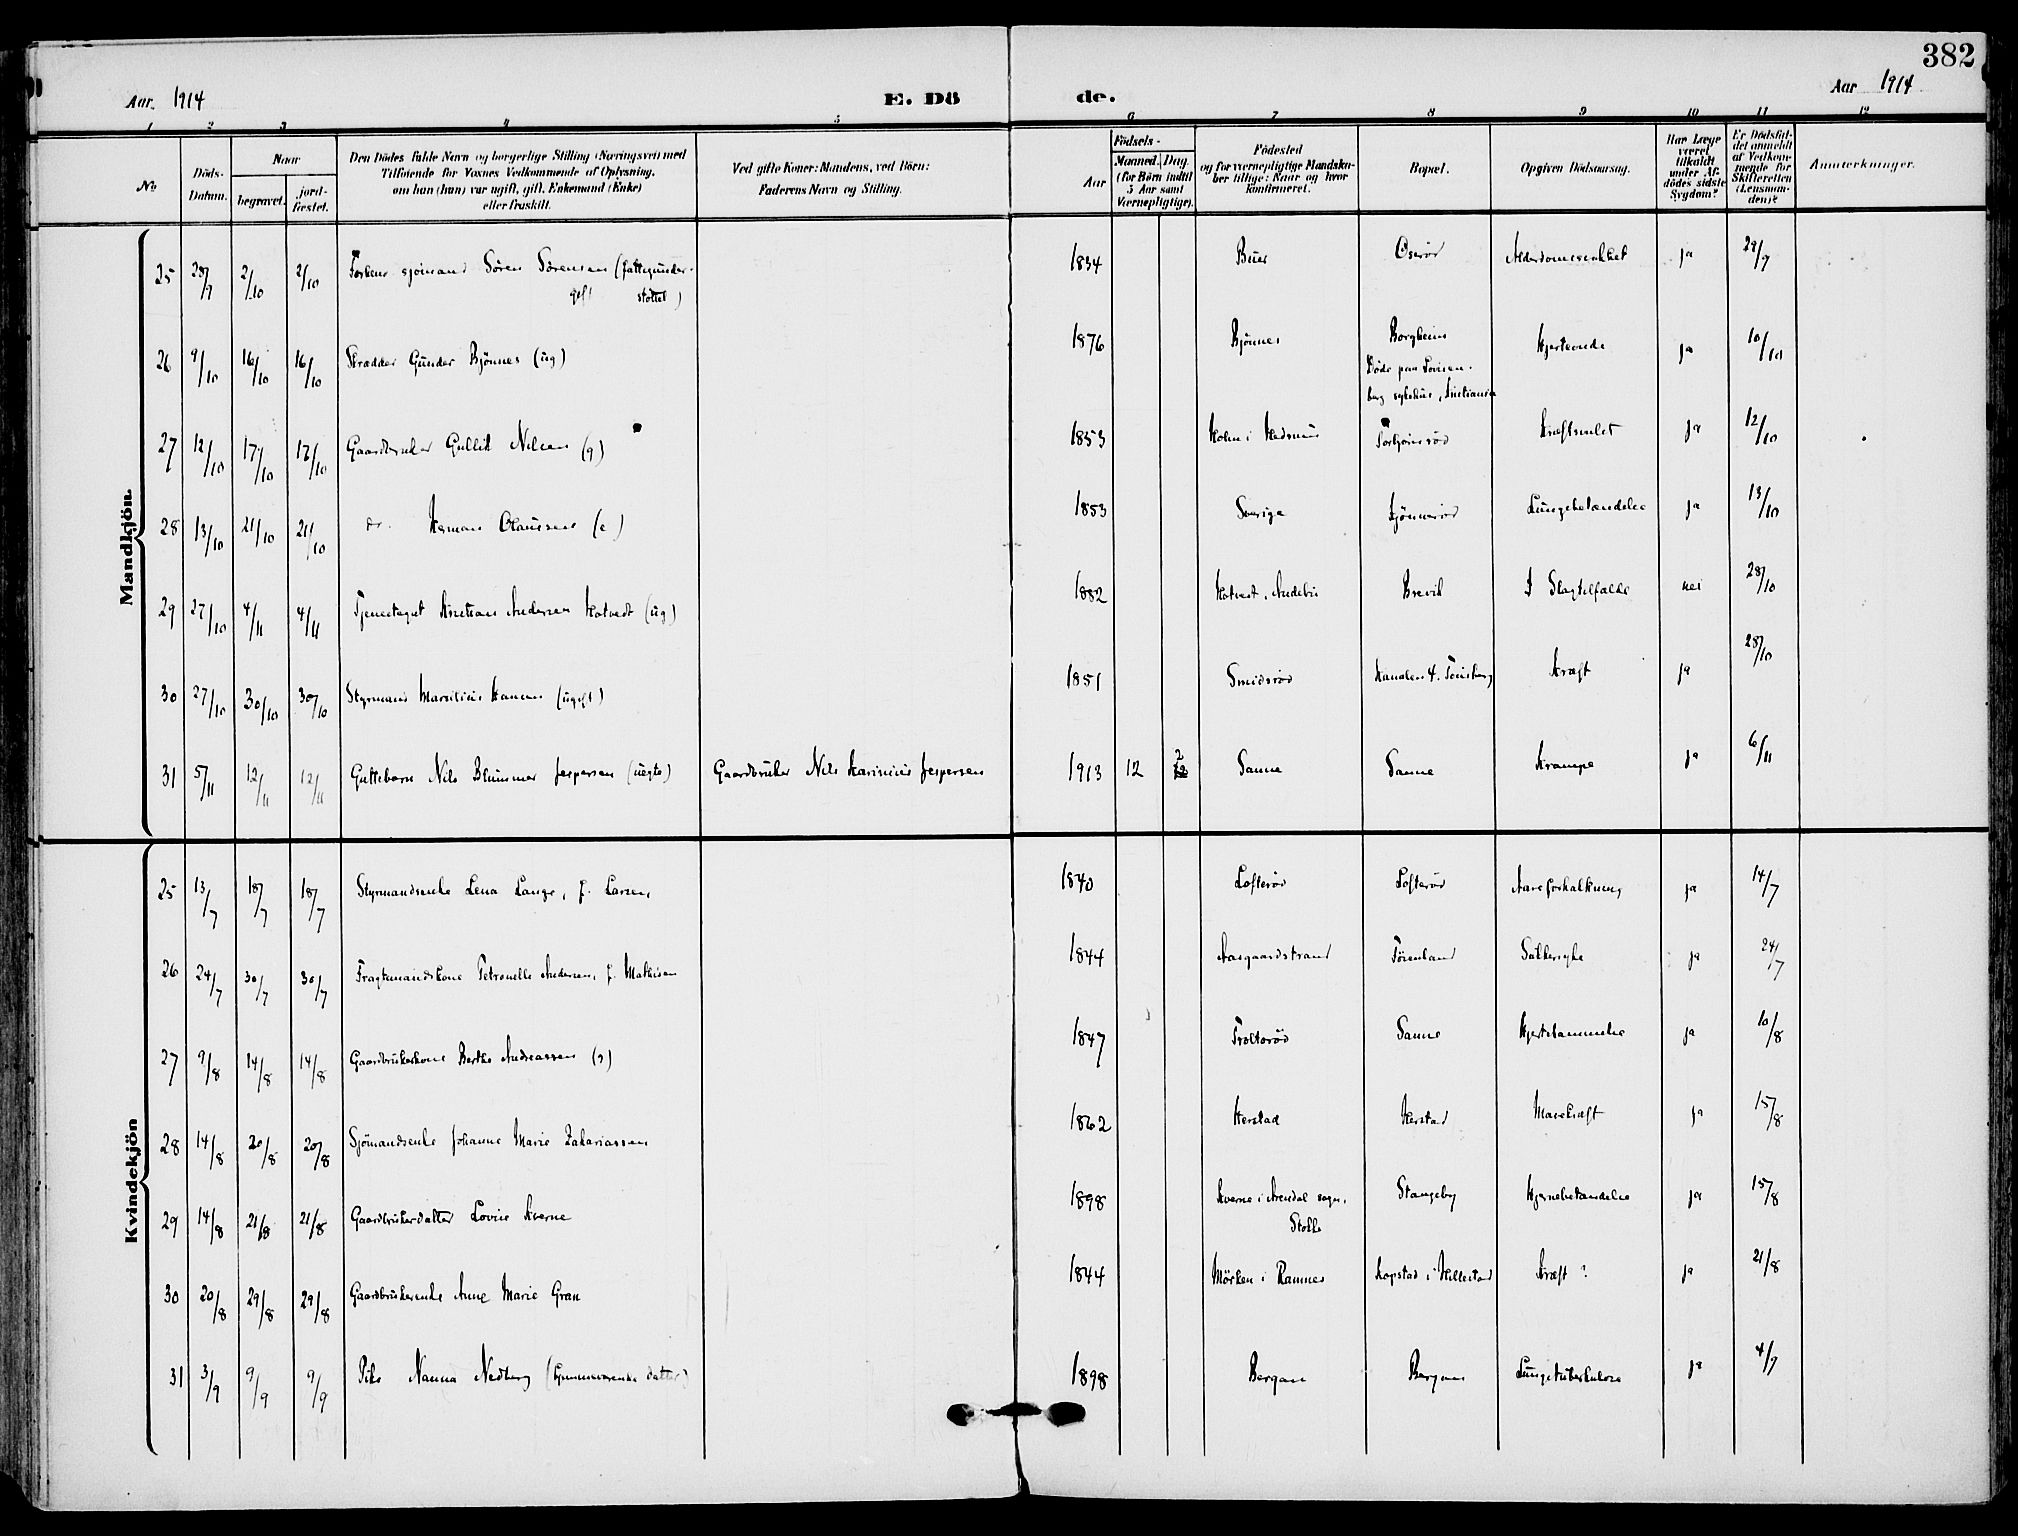 382
Aar 1914
E. Döde.
Aar 1914
1 2 3 4 5 6 7 8 9 10 11 12
No
Döds-Datum.
Naar
begravet.
jord-fæstet.
Den Dödes fulde Navn og borgerlige Stilling (Næringsvei) med
Tilföiende for Voxnes Vedkommende af Oplysning,
om han (hun) var ugift, gift, Enkemand (Enke)
eller fraskilt.
Ved gifte Koner: Mandens, ved Börn:
Faderens Navn og Stilling.
Födsels-
Aar
Maaned. Dag.
(for Börn indtil
5 Aar samt
Værnepligtige).
Födested
og for værnepligtige Mandskaber tillige: Naar og hvor
konfirmeret.
Bopæl.
Opgiven Dödsaarsag.
Har Læge
været
tilkaldt
under Afdödes sidste
Sygdom?
Er Dödsfaldet anmeldt
af Vedkommende for
Skifteretten
(Lensmanden)?
Anmærkninger.
Mandkjön.
25 28/9 2/10 2/10 Forhenv sjömand Sören Sörensen (fattigunderstöttet) gift 1834 Buer Oserød Alderdomssvakhet ja 29/9
26 9/10 16/10 16/10 Skrædder Gunder Bjönnes (ug) 1876 Bjönnes Borgheim
Döde paa Lovisenberg sykehus, Kristiania Hjerteonde ja 10/10
27 12/10 17/10 17/10 Gaardbruker Gullik Nilsen (g) 1853 Holm i Hedrum Torbjörnsröd Kræftsvulst ja 12/10
28 13/10 21/10 21/10 do. Herman Olaussen (e) 1853 Sverige Lungebetændelse ja 13/10
29 27/10 4/11 4/11 Tjenestegut Kristian Andersen Hotvedt (ug) 1882 Hotvedt, Andebu Brevik Slagtilfælde nei 28/10
30 27/10 30/10 30/10 Styrmand Mauritius Hansen (ugift) 1851 Smidsröd Kanalen 4. Tönsberg Kræft ja 28/10
31 5/11 12/11 12/11 Guttebarn Nils Blummer Jespersen (uegte) Gaardbruker Nils Karinius Jespersen 1913 12 2 Sanne Sanne Krampe ja 6/11
Kvindekjön
25 13/7 18/7 18/7 Styrmandsenke Lena Lange, f. Larsen 1840 Lofteröd Lofteröd Aareforkalkning ja 14/7
26 24/7 30/7 30/7 Fragtemandskone Petronelle Andersen, f. Mathisen 1844 Aasgaardstrand Förenland Sukkersyke ja 24/7
27 9/8 14/8 14/8 Gaardbrukerkone Berthe Andreassen (g) 1847 Troltaröd Sanne Hjertelammelse ja 10/8
28 14/8 20/8 20/8 Sjömandsenke Johanne Marie Zakariassen 1862 Herstad Herstad Mavekræft ja 15/8
29 14/8 21/8 21/8 Gaardbrukerdatter Lovise Kverne 1898 Kverne i Arendal sogn,
Stokke Stangeby Hjernebetændelse ja 15/8
30 20/8 29/8 29/8 Gaardbrukerenke Anne Marie Gran 1844 Mörken i Ramnes Kopstad i Hillestad Kræft ? ja 21/8
31 3/9 9/9 9/9 Pike Nanna Nedberg 1898 Bergan Bergan Lungetuberkulose ja 4/9